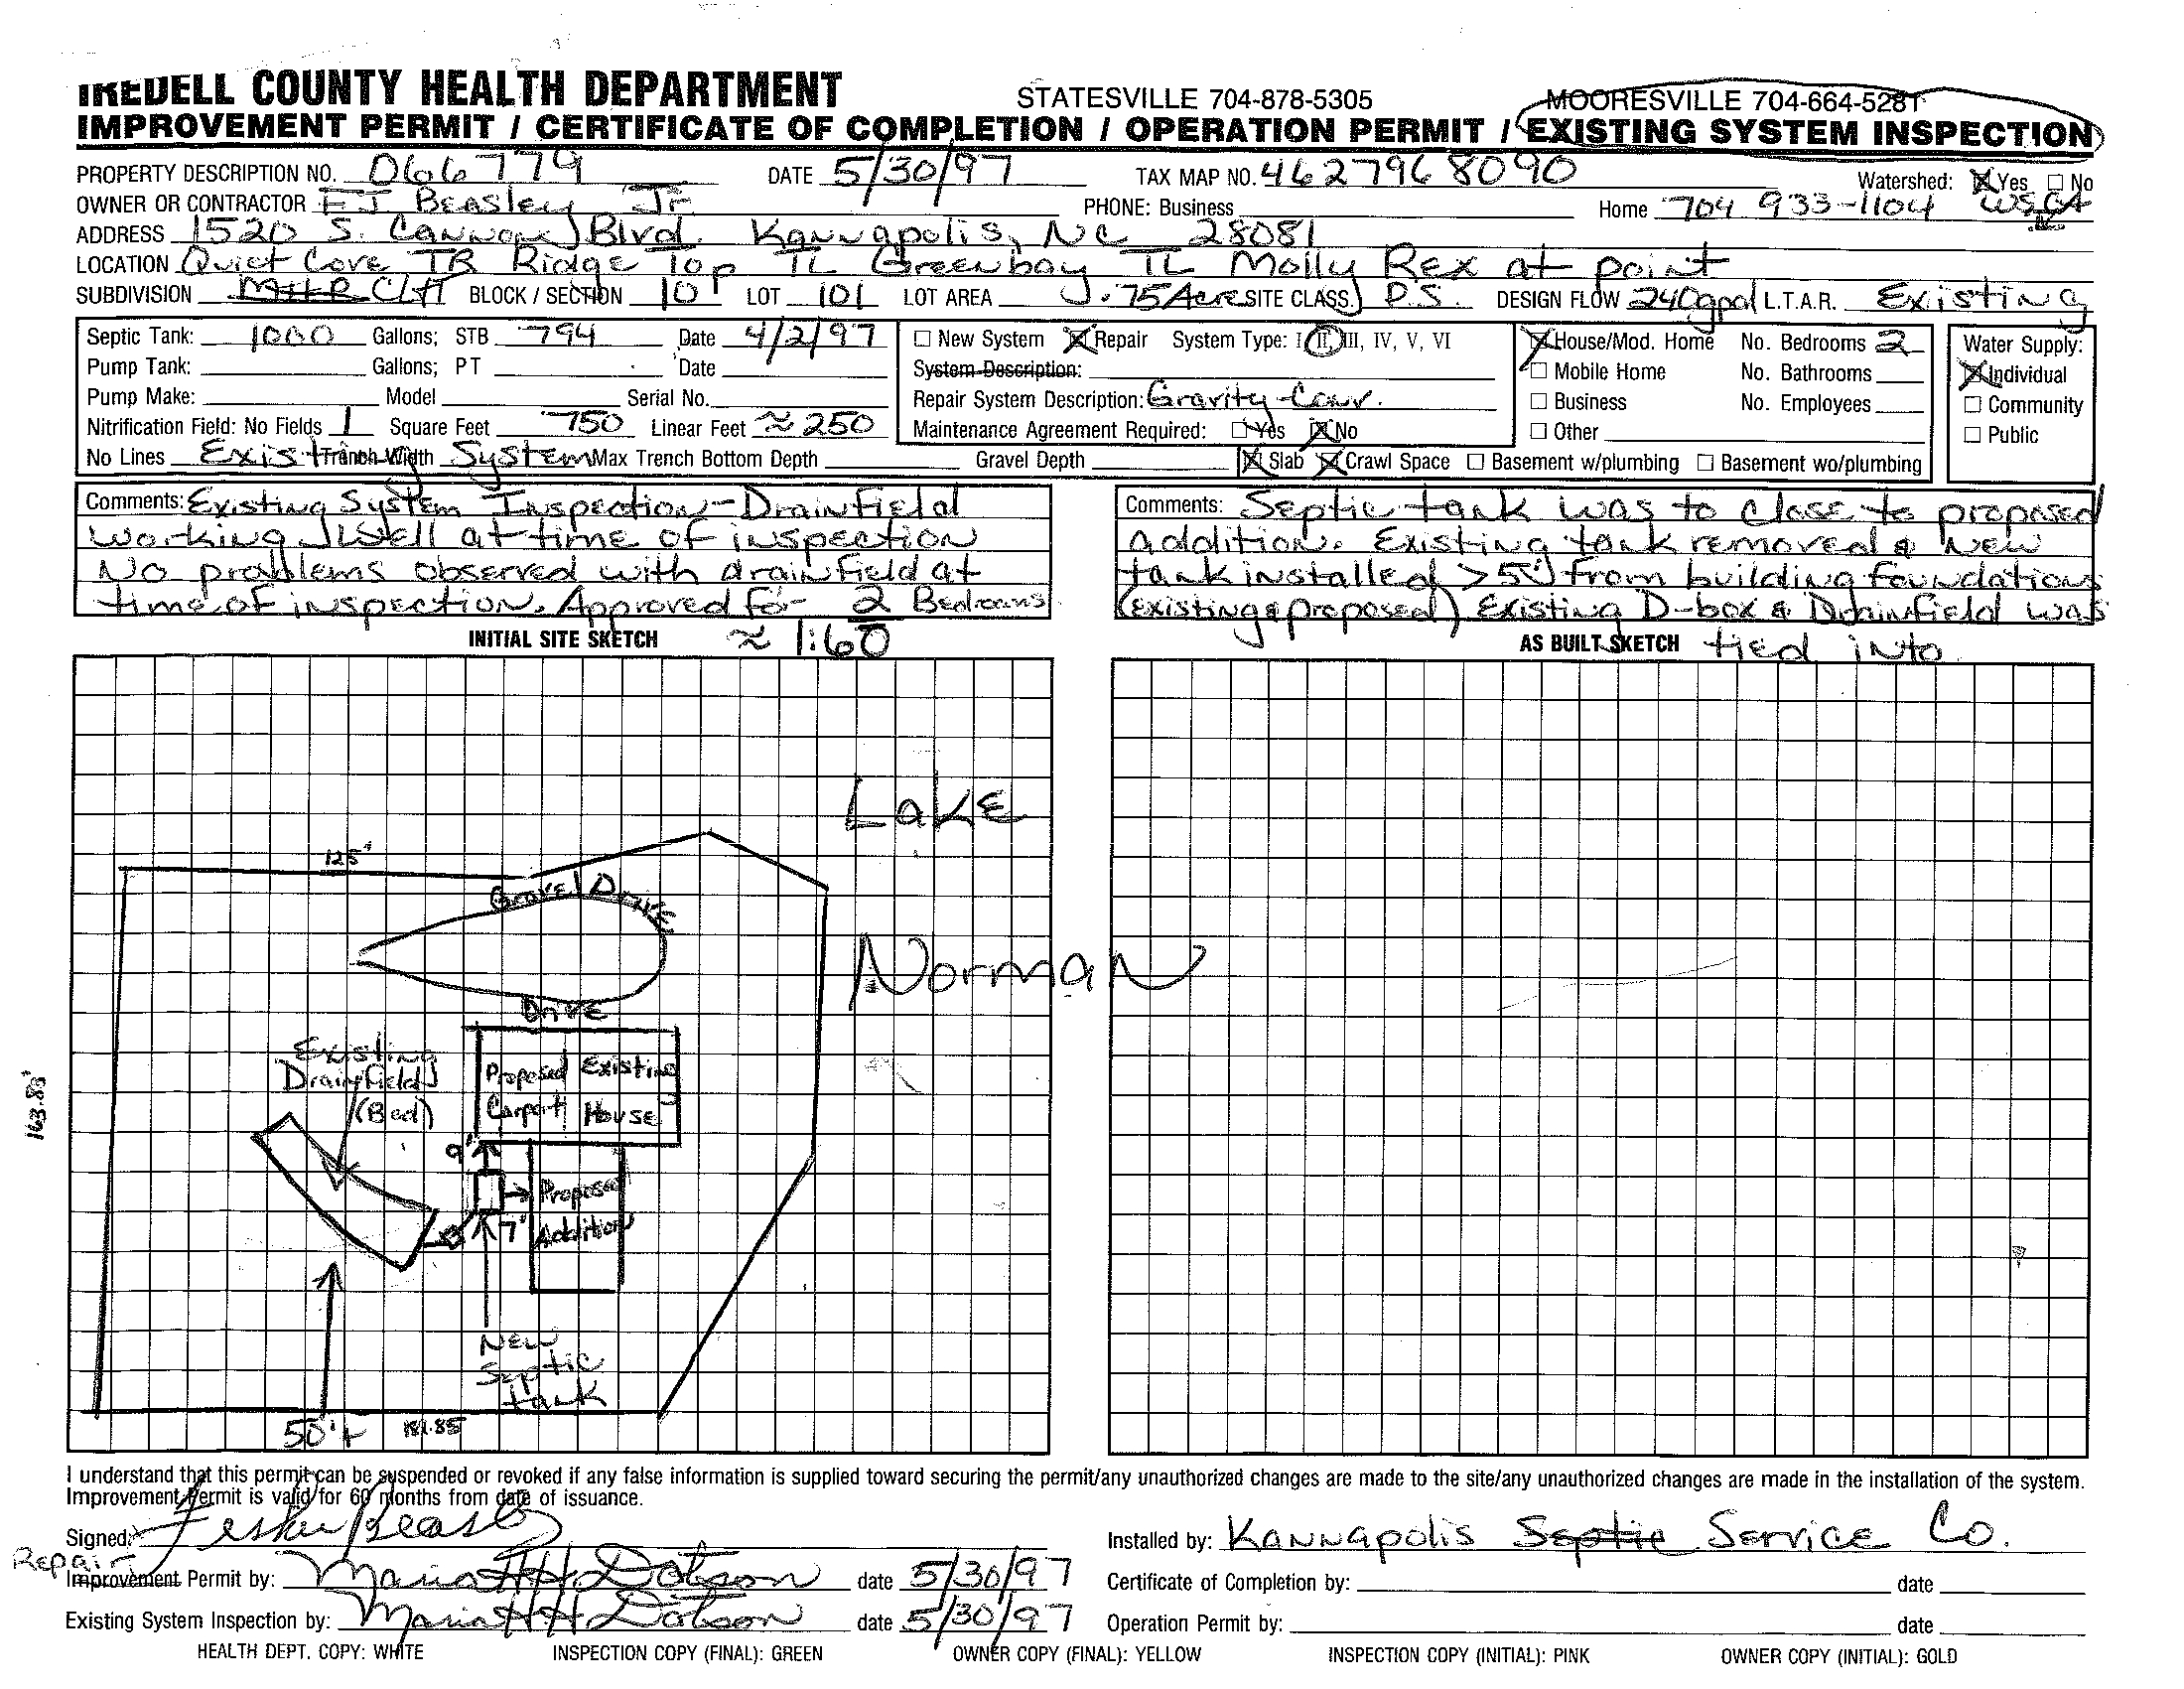 IREDELL COUNTY HEALTH DEPARTMENT STATESVILLE 704-878-5305 MOORESVILLE 704-664-5281
IMPROVEMENT PERMIT / CERTIFICATE OF COMPLETION / OPERATION PERMIT / EXISTING SYSTEM INSPECTION
PROPERTY DESCRIPTION NO. 066779 DATE 5/30/97 TAX MAP NO. 4627968090 Watershed: Yes No
OWNER OR CONTRACTOR EJ Beasley Jr. PHONE: Business Home 704 933-1104
ADDRESS 1520 S. Cannon Blvd. Kannapolis, NC 28081
LOCATION Quiet Cove TR Ridge Top TL Greenbay TL Molly Rex at point
SUBDIVISION BLOCK / SECTION 10 LOT 101 LOT AREA 0.75 Acre SITE CLASS. P.S. DESIGN FLOW 240gpd L.T.A.R. Existing
Septic Tank: 1000 Gallons; STB 794 Date 4/2/97 New System Repair System Type: I, II, III, IV, V, VI House/Mod. Home No. Bedrooms 2 Water Supply:
Pump Tank: Gallons; PT Date System Description: Mobile Home No. Bathrooms Individual
Pump Make: Model Serial No. Repair System Description: Gravity-Conv. Business No. Employees Community
Nitrification Field: No Fields 1 Square Feet 750 Linear Feet ≈ 250 Maintenance Agreement Required: Yes No Other Public
No Lines Existing Trench Width System Max Trench Bottom Depth Gravel Depth Slab Crawl Space Basement w/plumbing Basement wo/plumbing
Comments: Existing System Inspection-Drainfield
working well at time of inspection
No problems observed with drainfield at
time of inspection. Approved for 2 Bedrooms
Comments: Septic tank was to close to proposed
addition. Existing tank removed & new
tank installed >5' from building foundations
(existing & proposed) Existing D-box & Drainfield was
INITIAL SITE SKETCH ≈ 1:60
AS BUILT SKETCH tied into
Lake
125'
Gravel Drive
Norman
Drive
Existing
Drainfield
(Bed)
Proposed
Carport
Existing
House
163.88'
9'
Proposed
Addition
7'
New
Septic
tank
50'+
181.85
I understand that this permit can be suspended or revoked if any false information is supplied toward securing the permit/any unauthorized changes are made to the site/any unauthorized changes are made in the installation of the system.
Improvement Permit is valid for 60 months from date of issuance.
Signed: Beasley
Installed by: Kannapolis Septic Service Co.
Repair
Improvement Permit by: Maria HH Dotson date 5/30/97 Certificate of Completion by: date
Existing System Inspection by: Maria HH Dotson date 5/30/97 Operation Permit by: date
HEALTH DEPT. COPY: WHITE INSPECTION COPY (FINAL): GREEN OWNER COPY (FINAL): YELLOW INSPECTION COPY (INITIAL): PINK OWNER COPY (INITIAL): GOLD